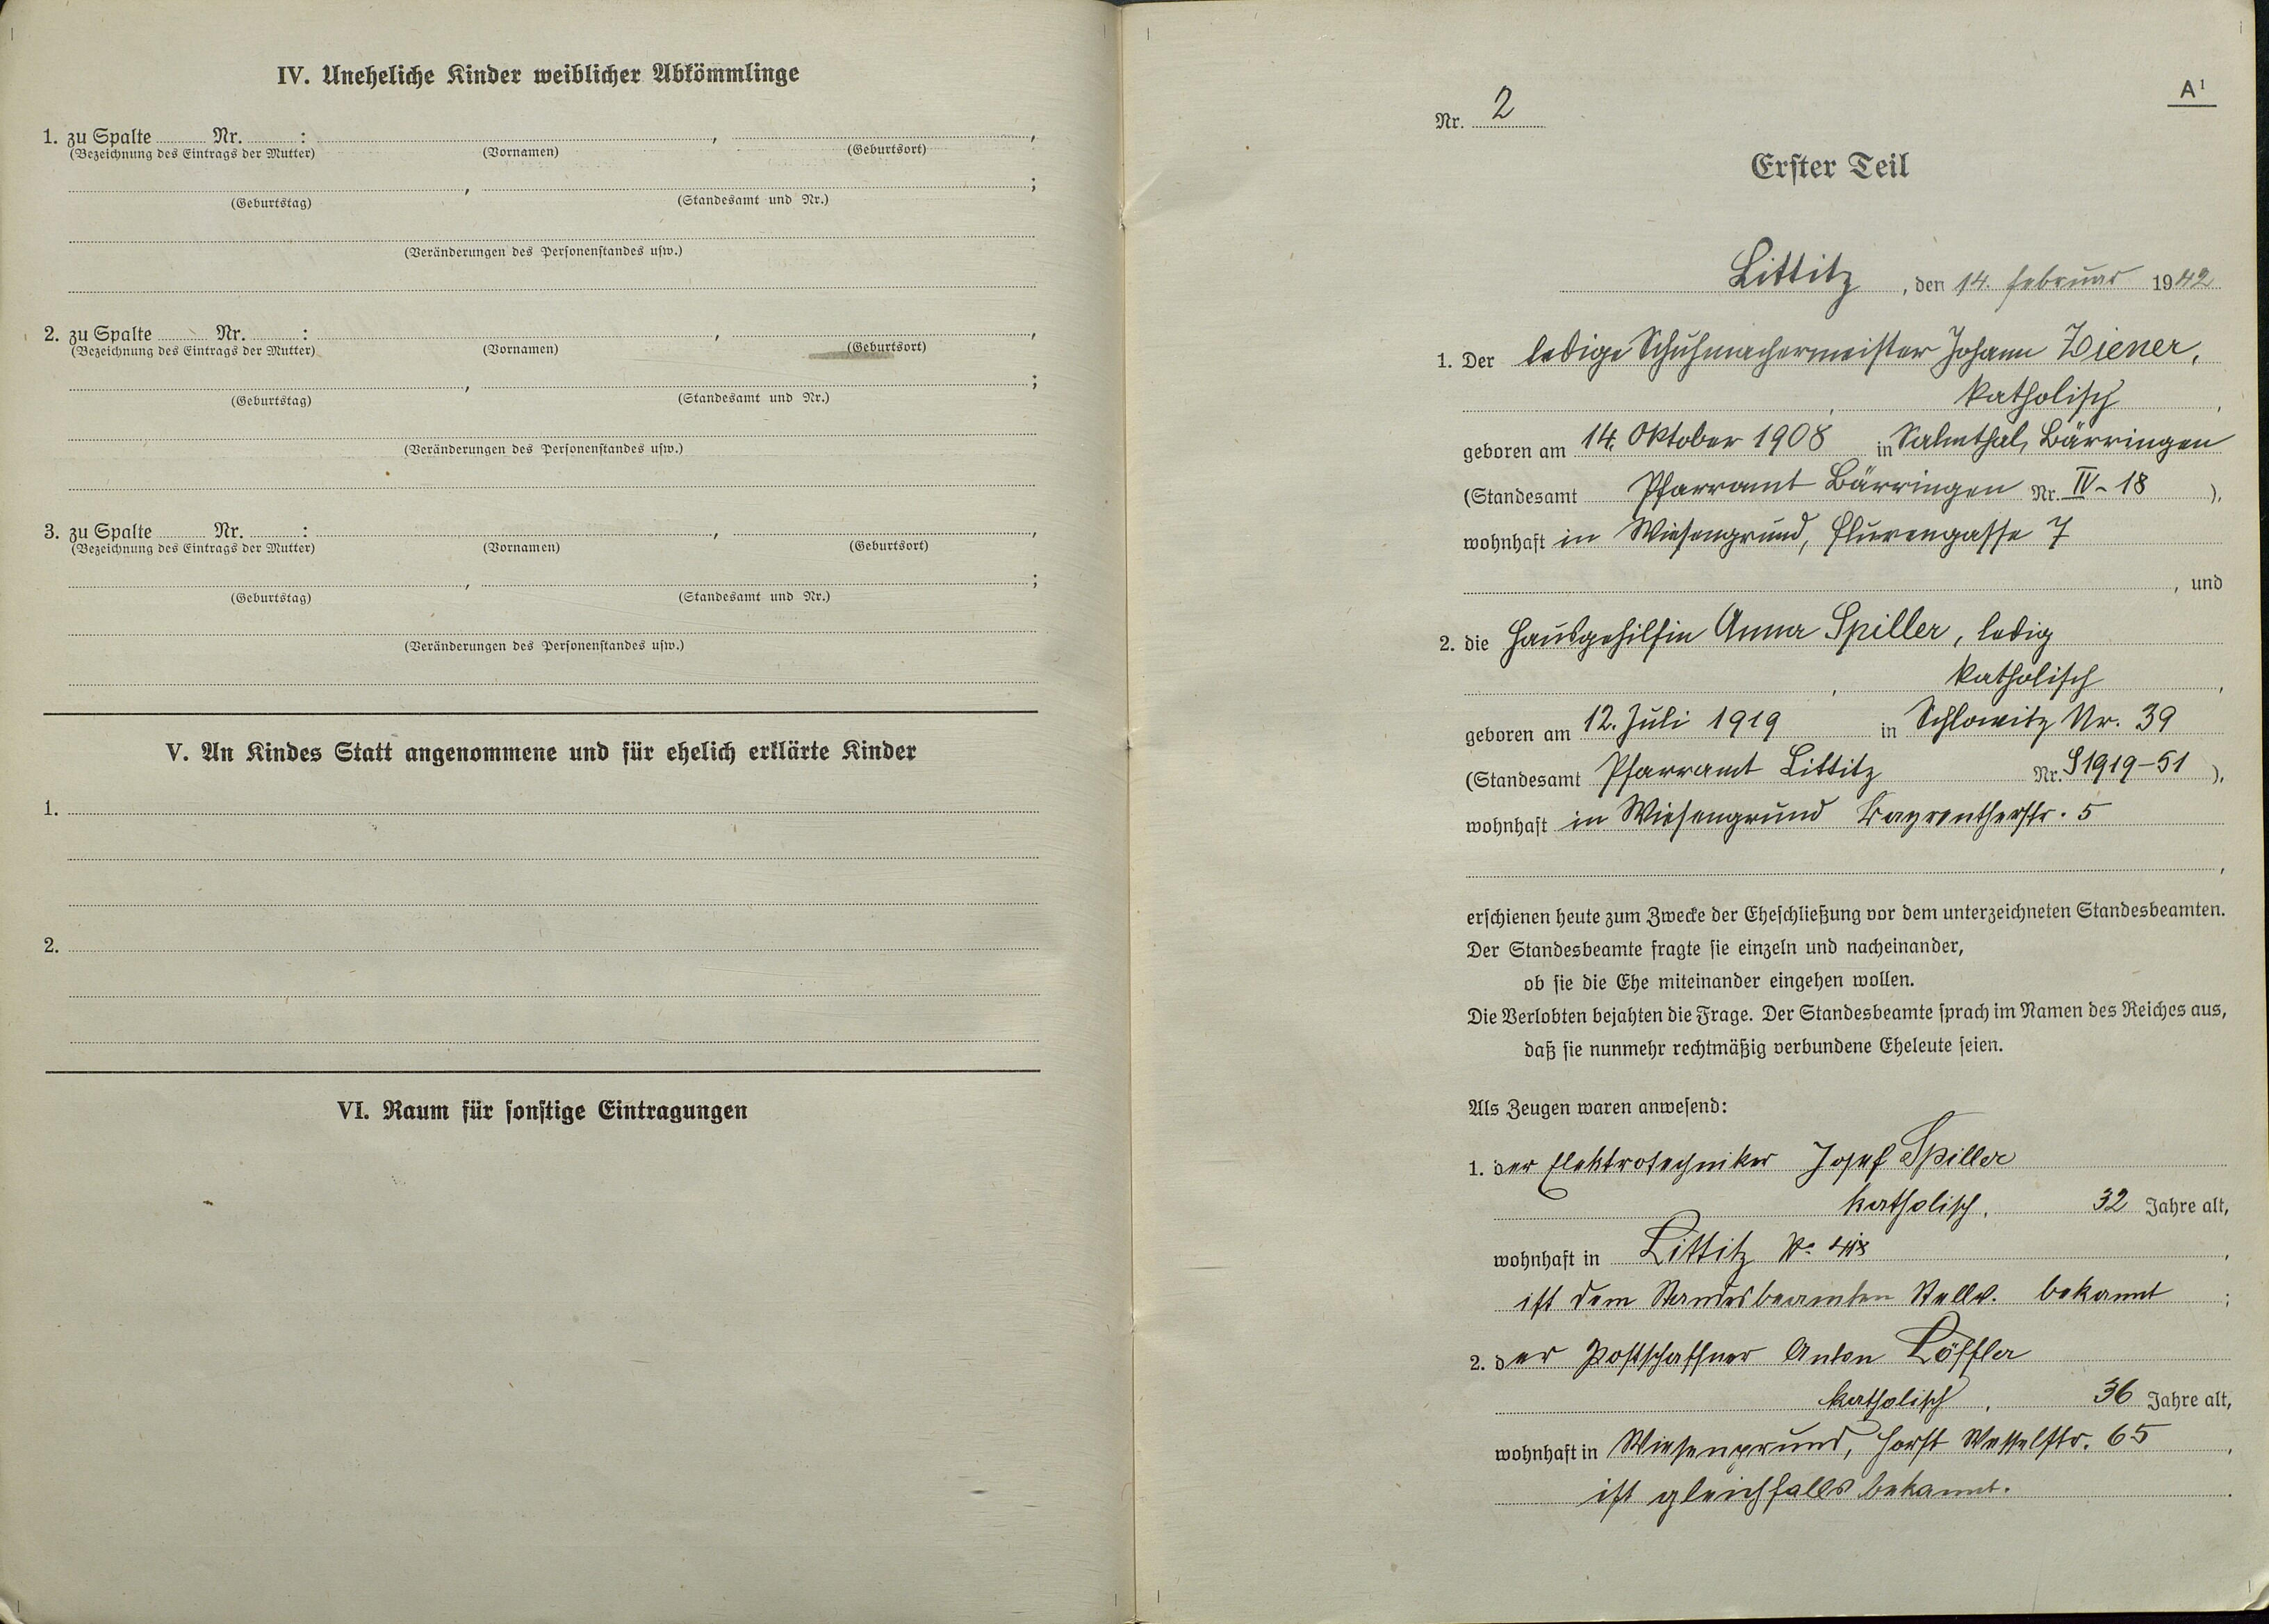 IV. Uneheliche Kinder weiblicher Abkömmlinge
1. zu Spalte ........ Nr. ........ : ........ , ........ ,
(Bezeichnung des Eintrags der Mutter) (Vornamen) (Geburtsort)
........ , ........ ;
(Geburtstag) (Standesamt und Nr.)
(Veränderungen des Personenstandes usw.)
2. zu Spalte ........ Nr. ........ : ........ , ........ ,
(Bezeichnung des Eintrags der Mutter) (Vornamen) (Geburtsort)
........ , ........ ;
(Geburtstag) (Standesamt und Nr.)
(Veränderungen des Personenstandes usw.)
3. zu Spalte ........ Nr. ........ : ........ , ........ ,
(Bezeichnung des Eintrags der Mutter) (Vornamen) (Geburtsort)
........ , ........ ;
(Geburtstag) (Standesamt und Nr.)
(Veränderungen des Personenstandes usw.)
V. An Kindes Statt angenommene und für ehelich erklärte Kinder
1.
2.
VI. Raum für sonstige Eintragungen
A¹
Nr. 2
Erster Teil
Littitz, den 14. Februar 1942
1. Der ledige Schuhmachermeister Johann Wiener,
, katholisch,
geboren am 14. Oktober 1908 in Salmthal, Bärringen
(Standesamt Pfarramt Bärringen Nr. IV-18 ),
wohnhaft in Wiesengrund, Flurengasse 7
, und
2. die Hausgehilfin Anna Spiller, ledig
, katholisch,
geboren am 12. Juli 1919 in Schlowitz Nr. 39
(Standesamt Pfarramt Littitz Nr. S 1919-51 ),
wohnhaft in Wiesengrund Bayreutherstr. 5
,
erschienen heute zum Zwecke der Eheschließung vor dem unterzeichneten Standesbeamten.
Der Standesbeamte fragte sie einzeln und nacheinander,
ob sie die Ehe miteinander eingehen wollen.
Die Verlobten bejahten die Frage. Der Standesbeamte sprach im Namen des Reiches aus,
daß sie nunmehr rechtmäßig verbundene Eheleute seien.
Als Zeugen waren anwesend:
1. der Elektrotechniker Josef Spiller
katholisch, 32 Jahre alt,
wohnhaft in Littitz ,
ist dem Standesbeamten Stellv. bekannt ;
2. der Postschaffner Anton Löffler
katholisch, 36 Jahre alt,
wohnhaft in Wiesengrund, Horst Wesselstr. 65 ,
ist gleichfalls bekannt.